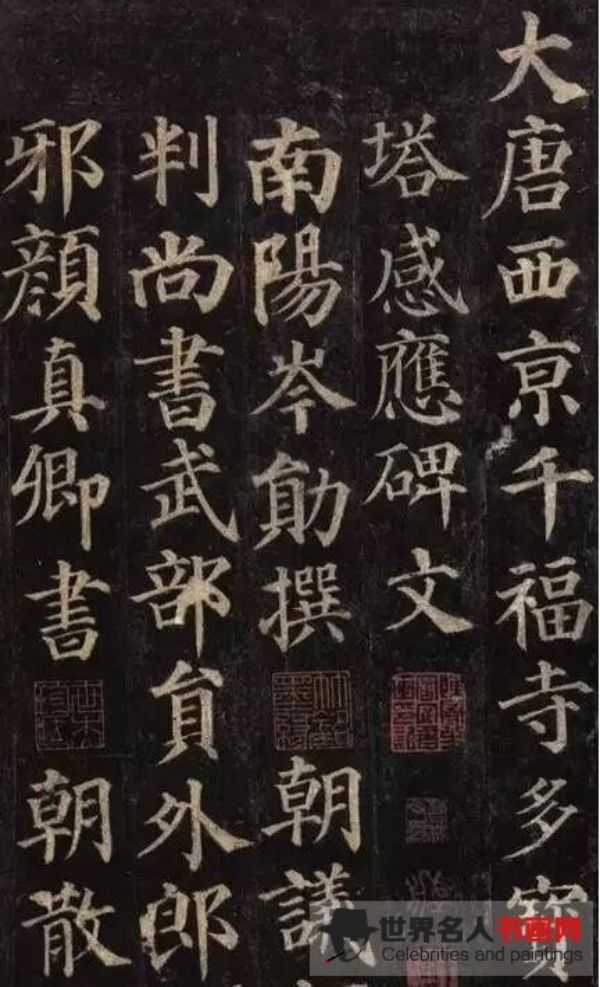 大唐西亰千福寺多寶
塔感應碑文
南陽岑勛撰 朝議
判尚書武部貟外郎
邪顔真卿書 朝散
世界名人书画网
Celebrities and paintings